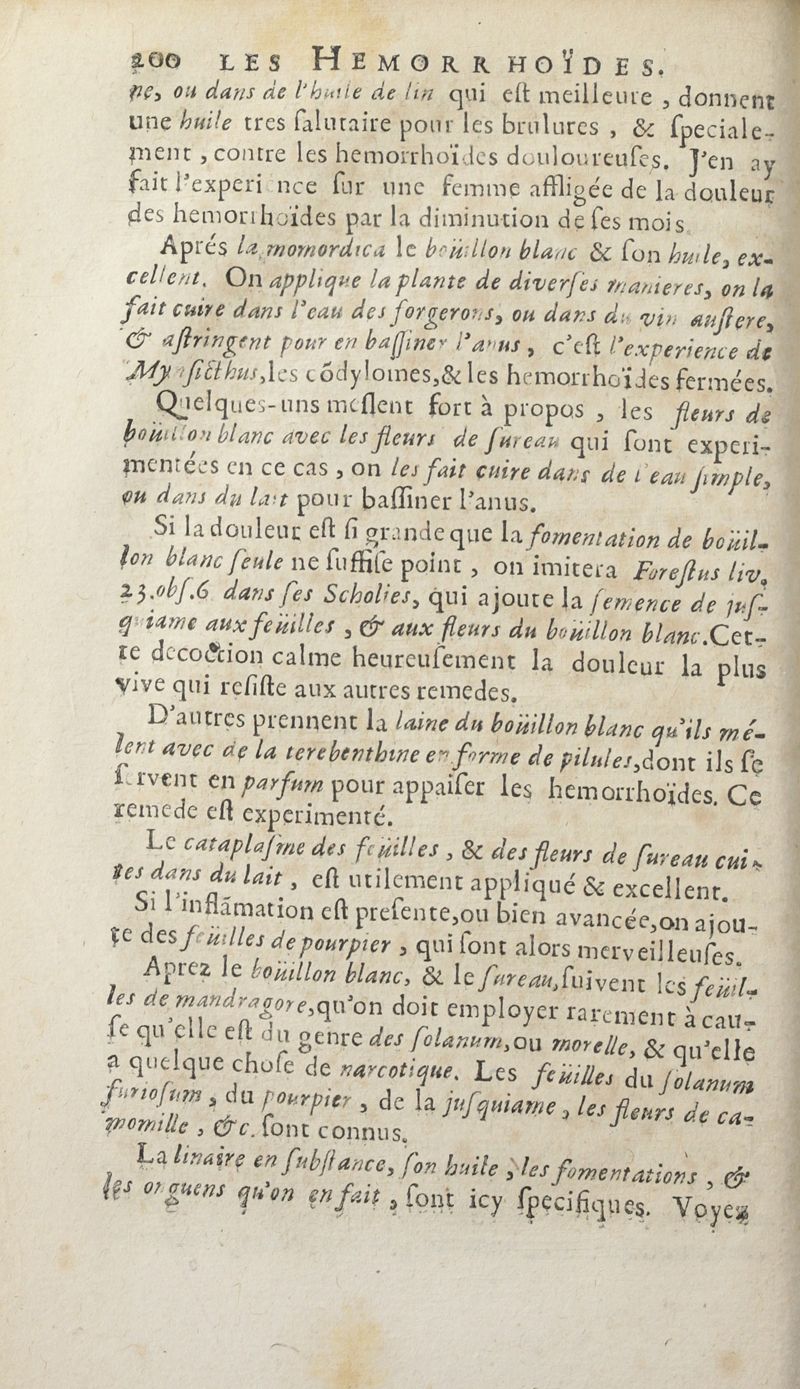 200 LES HEMORRHOÏDES.
ne, ou dans de l'huile de lin qui eſt meilleure , donnent
une huile tres ſalutaire pour les brulures , & ſpeciale-
ment , contre les hemorrhoïdes douloureuſes. J'en ay
fait l'experience ſur une femme affligée de la douleur
des hemorrhoïdes par la diminution de ſes mois.
Aprés la momordica le boüillon blanc & ſon huile, ex-
cellent. On applique la plante de diverſes manieres, on la
fait cuire dans l'eau des forgerons, ou dans du vin auſtere,
& aſtringent pour en baſſiner l'anus , c'eſt l'experience de
Mynſicthus,les cõdylomes,& les hemorrhoïdes fermées.
Quelques-uns meſlent fort à propos , les fleurs de
boüillon blanc avec les fleurs de ſureau qui ſont experi-
mentées en ce cas , on les fait cuire dans de l'eau ſimple,
ou dans du lait pour baſſiner l'anus.
Si la douleur eſt ſi grande que la fomentation de boüil-
lon blanc ſeule ne ſuffiſe point , on imitera Foreſtus liv.
23.obſ.6 dans ſes Scholies, qui ajoute la ſemence de juſ-
quiame aux feüilles , & aux fleurs du boüillon blanc.Cet-
te decoction calme heureuſement la douleur la plus
vive qui reſiſte aux autres remedes.
D'autres prennent la laine du boüillon blanc qu'ils mé-
lent avec de la terebenthine en forme de pilules,dont ils ſe
ſervent en parfum pour appaiſer les hemorrhoïdes. Ce
remede eſt experimenté.
Le cataplaſme des feüilles , & des fleurs de ſureau cui-
tes dans du lait , eſt utilement appliqué & excellent.
Si l'inflãmation eſt preſente,ou bien avancée,on ajou-
te des feüilles de pourpier , qui ſont alors merveilleuſes.
Aprez le boüillon blanc, & le ſureau,ſuivent les feüil-
les de mandragore,qu'on doit employer rarement à cau-
ſe qu'elle eſt du genre des ſolanum,ou morelle, & qu'elle
a quelque choſe de narcotique. Les feüilles du ſolanum
furioſum , du pourpier , de la juſquiame , les fleurs de ca-
momille , &c. ſont connus.
La linaire en ſubſtance, ſon huile , les fomentations , &
les onguens qu'on en fait , ſont icy ſpecifiques. Voyez